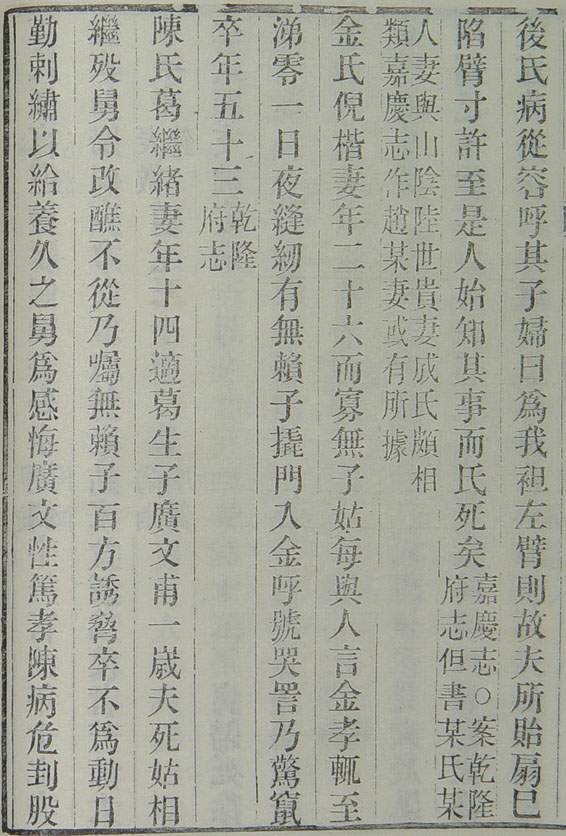 後氏病從容呼其子婦曰為我袒左臂則故夫所貽扇已
陷臂寸許至是人始知其事而氏死矣嘉慶志○案乾隆府志但書某氏某
人妻與山陰陸世貴妻成氏頗相類嘉慶志作趙某妻或有所據
金氏倪楷妻年二十六而寡無子姑每與人言金孝輒至
涕零一日夜縫紉有無賴子撬門入金呼號哭詈乃驚竄
卒年五十三乾隆府志
陳氏葛繼緒妻年十四適葛生子廣文甫一歲夫死姑相
繼歿舅令改醮不從乃囑無賴子百方誘脅卒不為動日
勤刺繡以給養久之舅為感悔廣文性篤孝陳病危刲股